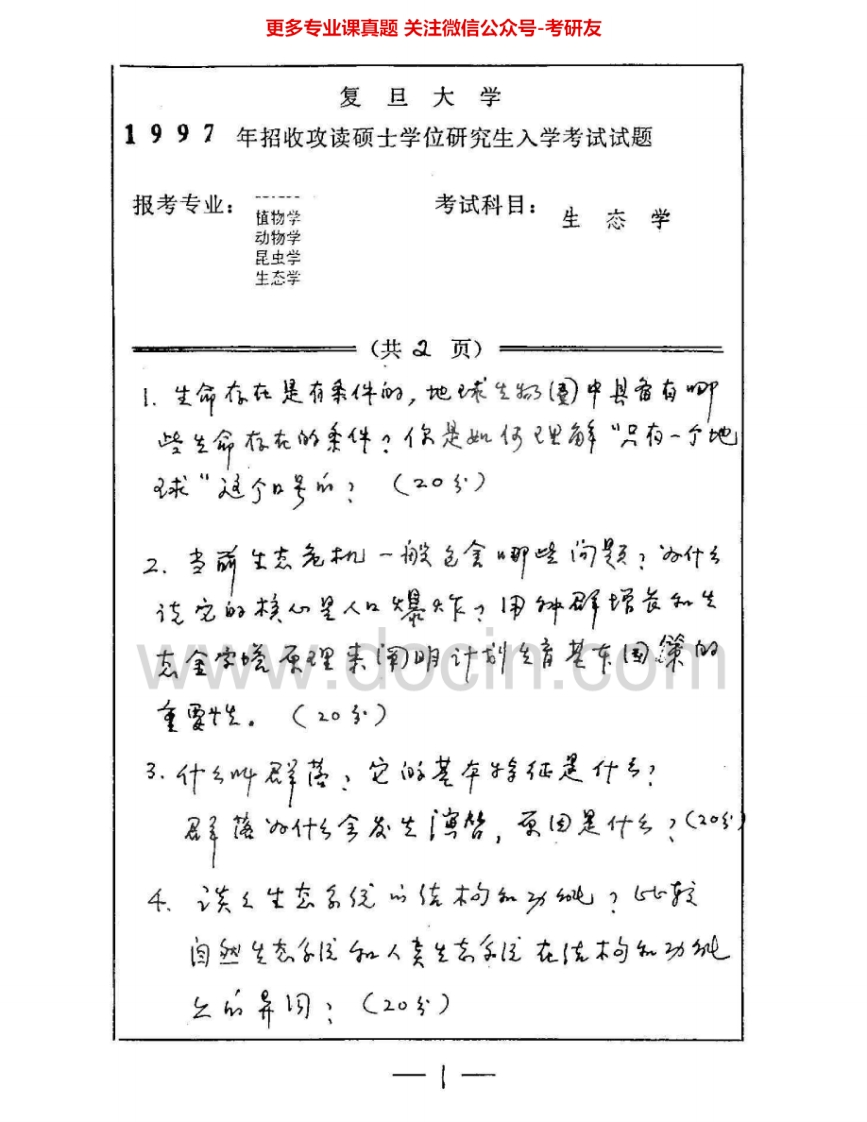 更多专业课真题 关注微信公众号-考研友
复旦大学
1997 年招收攻读硕士学位研究生入学考试试题
报考专业：
植物学
动物学
昆虫学
生态学
考试科目： 生态学
(共 2 页)
1. 生命存在是有条件的，地球生物圈中具备有哪
些生命存在的条件？你是如何理解"只有一个地
球"这个口号的？ （20分）
2. 当前生态危机一般包含哪些问题？为什么
说它的核心是人口爆炸？用种群增长和生
态金字塔原理来阐明计划生育基本国策的
重要性。 （20分）
www.docin.com
3. 什么叫群落？它的基本特征是什么？
群落为什么会发生演替，原因是什么？（20分）
4. 谈谈生态系统的结构和功能？比较
自然生态系统和人类生态系统在结构和功能
上的异同？ （20分）
— 1 —